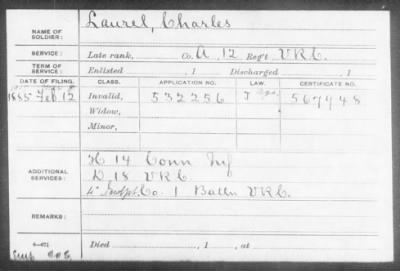 NAME OF SOLDIER: Laurel, Charles
SERVICE: Late rank, Co. A, 12 Reg't V.R.C.
TERM OF SERVICE: Enlisted , 1 Discharged , 1
DATE OF FILING. CLASS. APPLICATION NO. LAW. CERTIFICATE NO.
1885 Feb 12 Invalid, 532256 567948
Widow,
Minor,
H 14 Conn Inf
ADDITIONAL SERVICES: D 18 V.R.C.
Co. 1 Battn V.R.C.
REMARKS:
Died , 1 , at